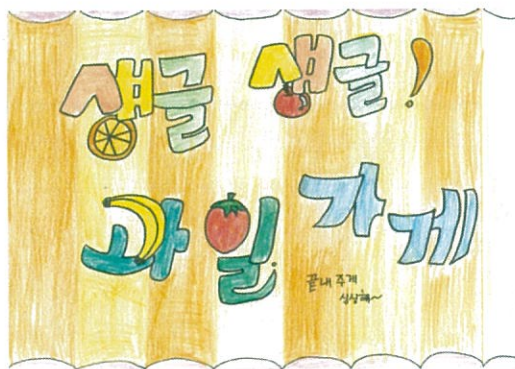 생글 생글!
과일 가게
끝내 주게
싱싱해~